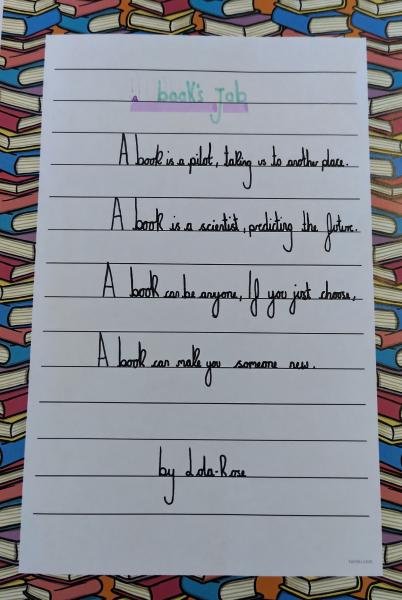 A book's Job
A book is a pilot, taking us to another place.
A book is a scientist, predicting the future.
A book can be anyone, If you just choose,
A book can make you someone new.
by Lola-Rose